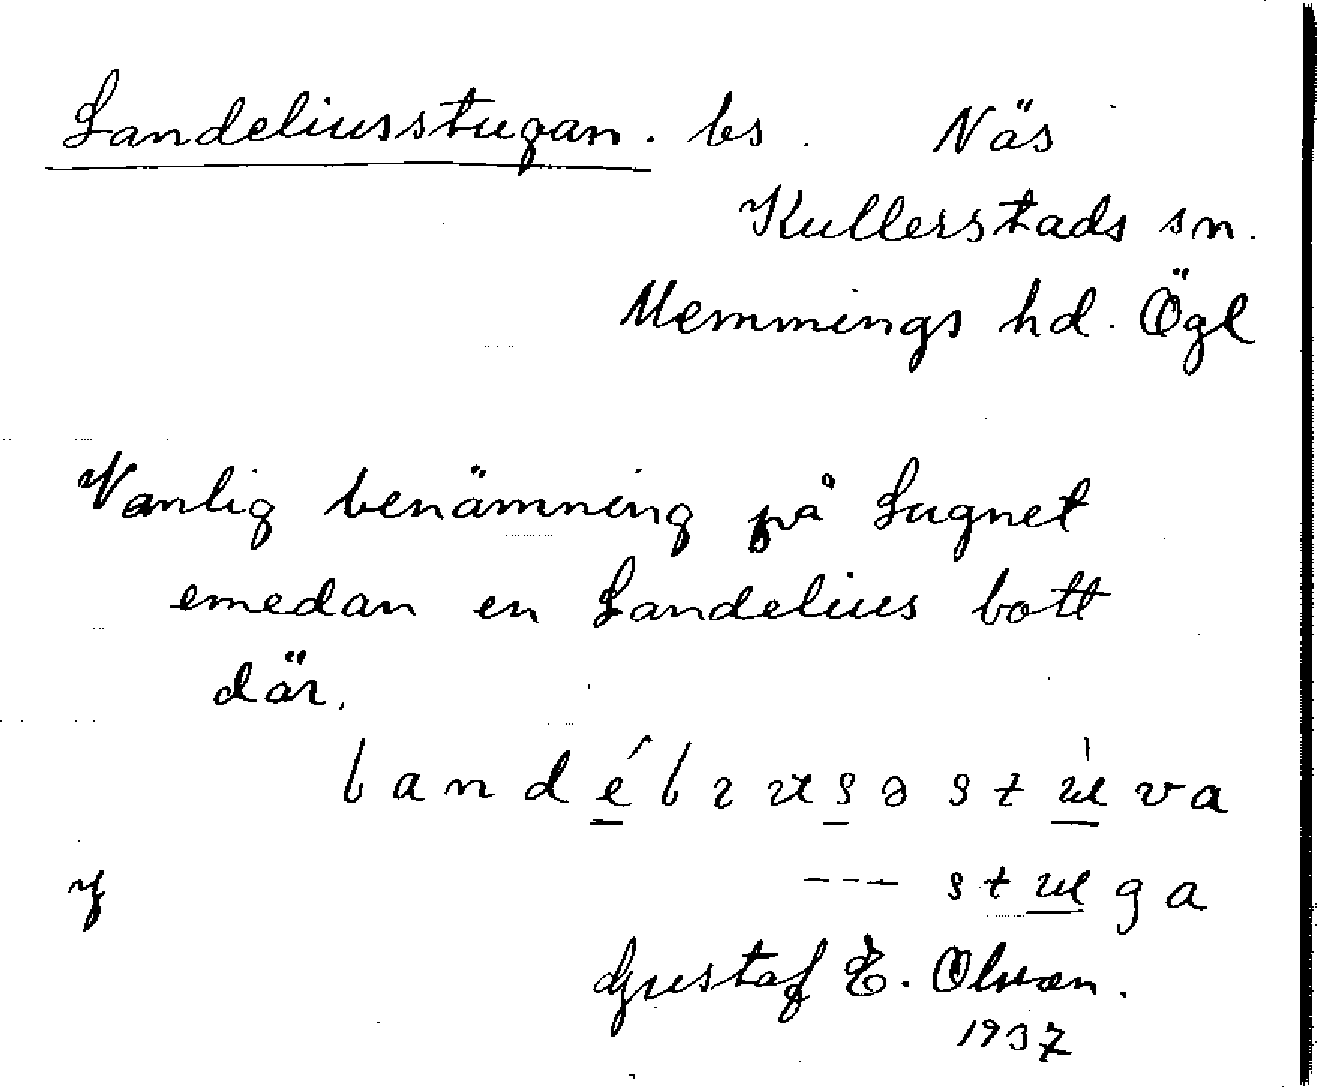 Landeliusstugan. bs. Näs
Kullerstads sn.
Memmings hd. Ögl
Vanlig benämning på Lugnet
emedan en Landelius bott
där.
landélıusəstùva
--- stuga
y
Gustaf E. Olsson.
1937